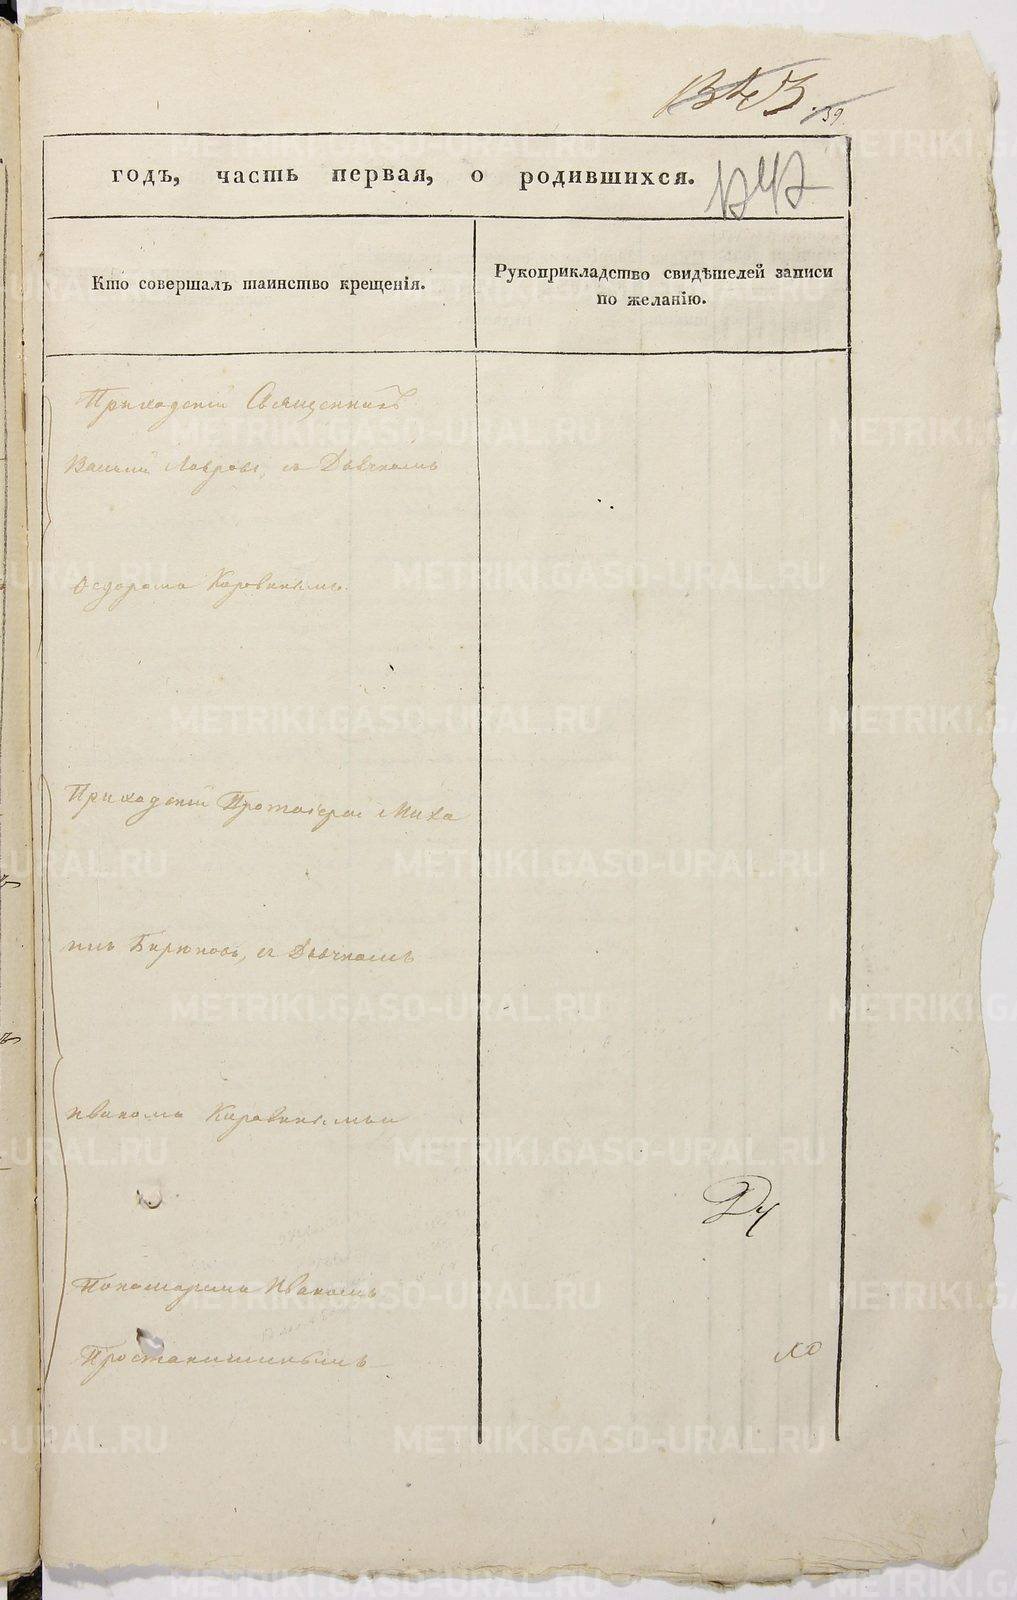 39.
годъ, часть первая, о родившихся.
Кто совершалъ таинство крещенія.
Рукоприкладство свидѣтелей записи
по желанію.
Приходскій Священникъ
Василій Лавровъ, съ Дьячкомъ
Ѳедоромъ Коровинымъ.
Приходскій Протоіерей Миха
илъ Бирюковъ, съ Дьячкомъ
Иваномъ Коровинымъ и
Пономаремъ Иваномъ
METRIKI.GASO-URAL.RU